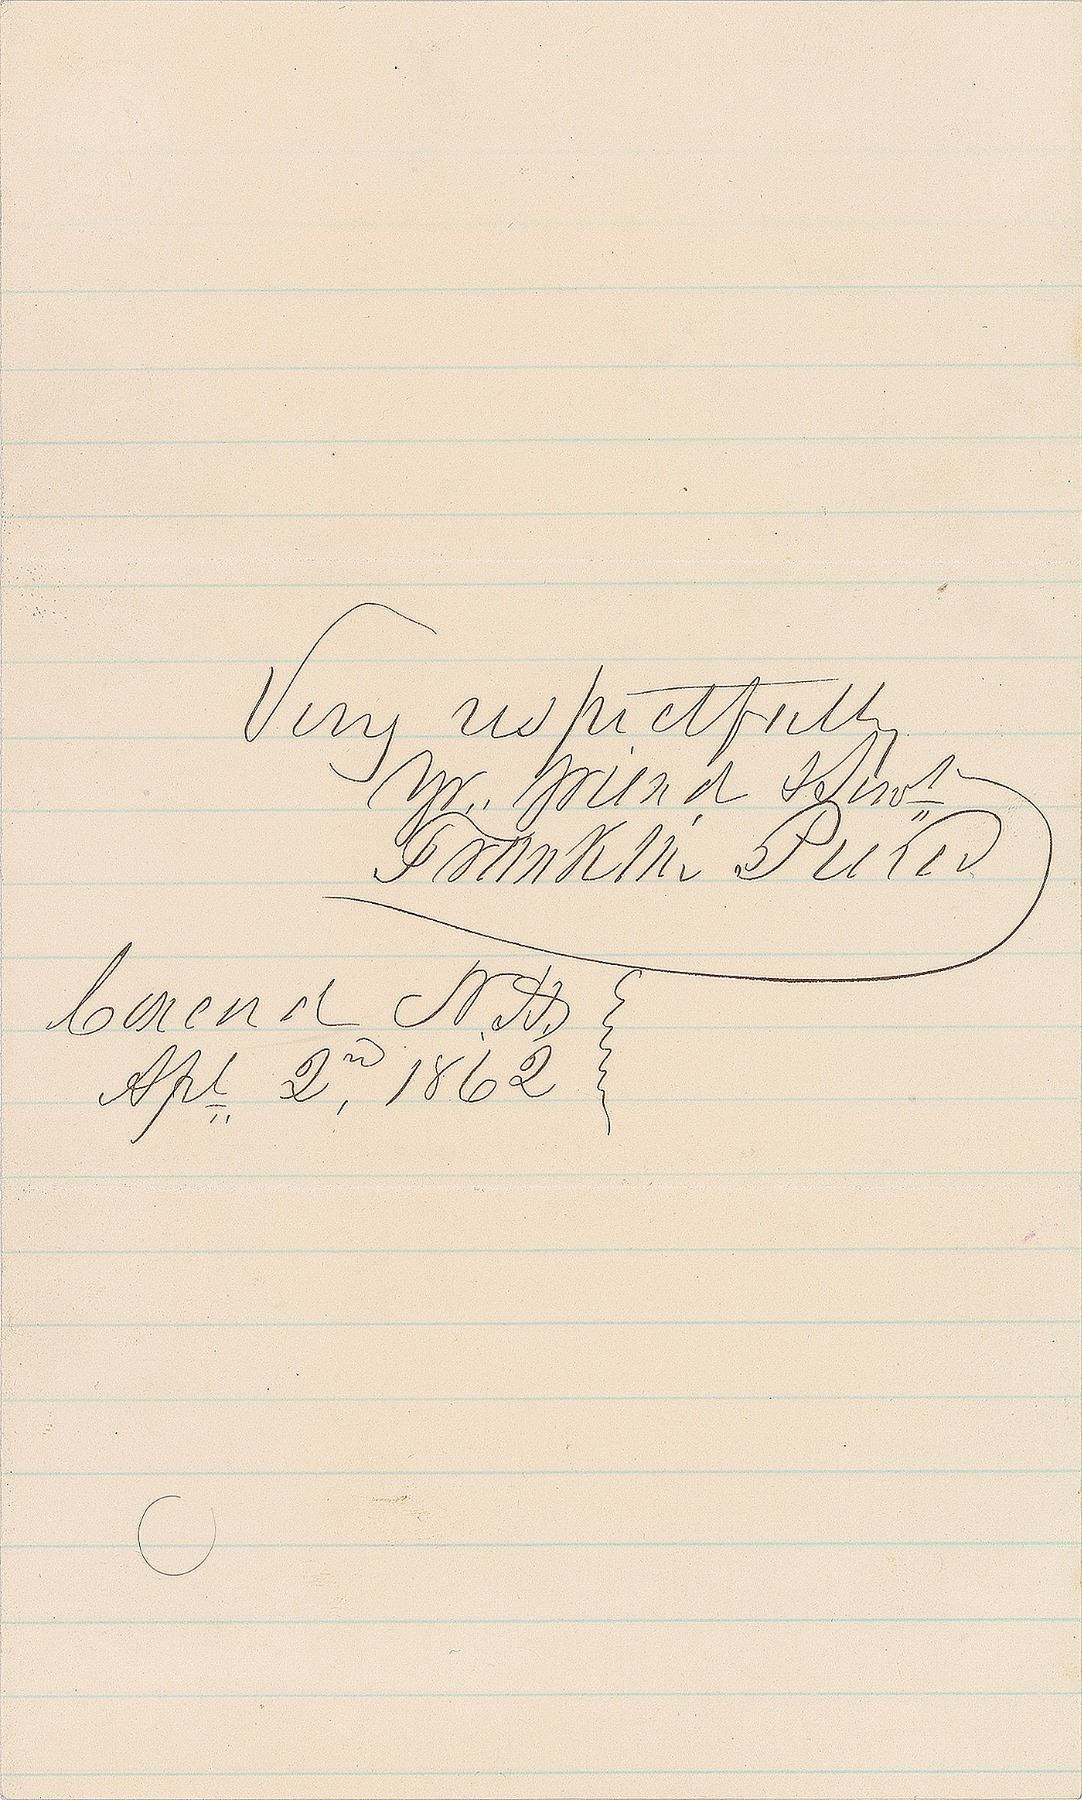 Very respectfully
Yr. friend & Servt
Franklin Pierce
Concord N.H.
Apl 2nd, 1862